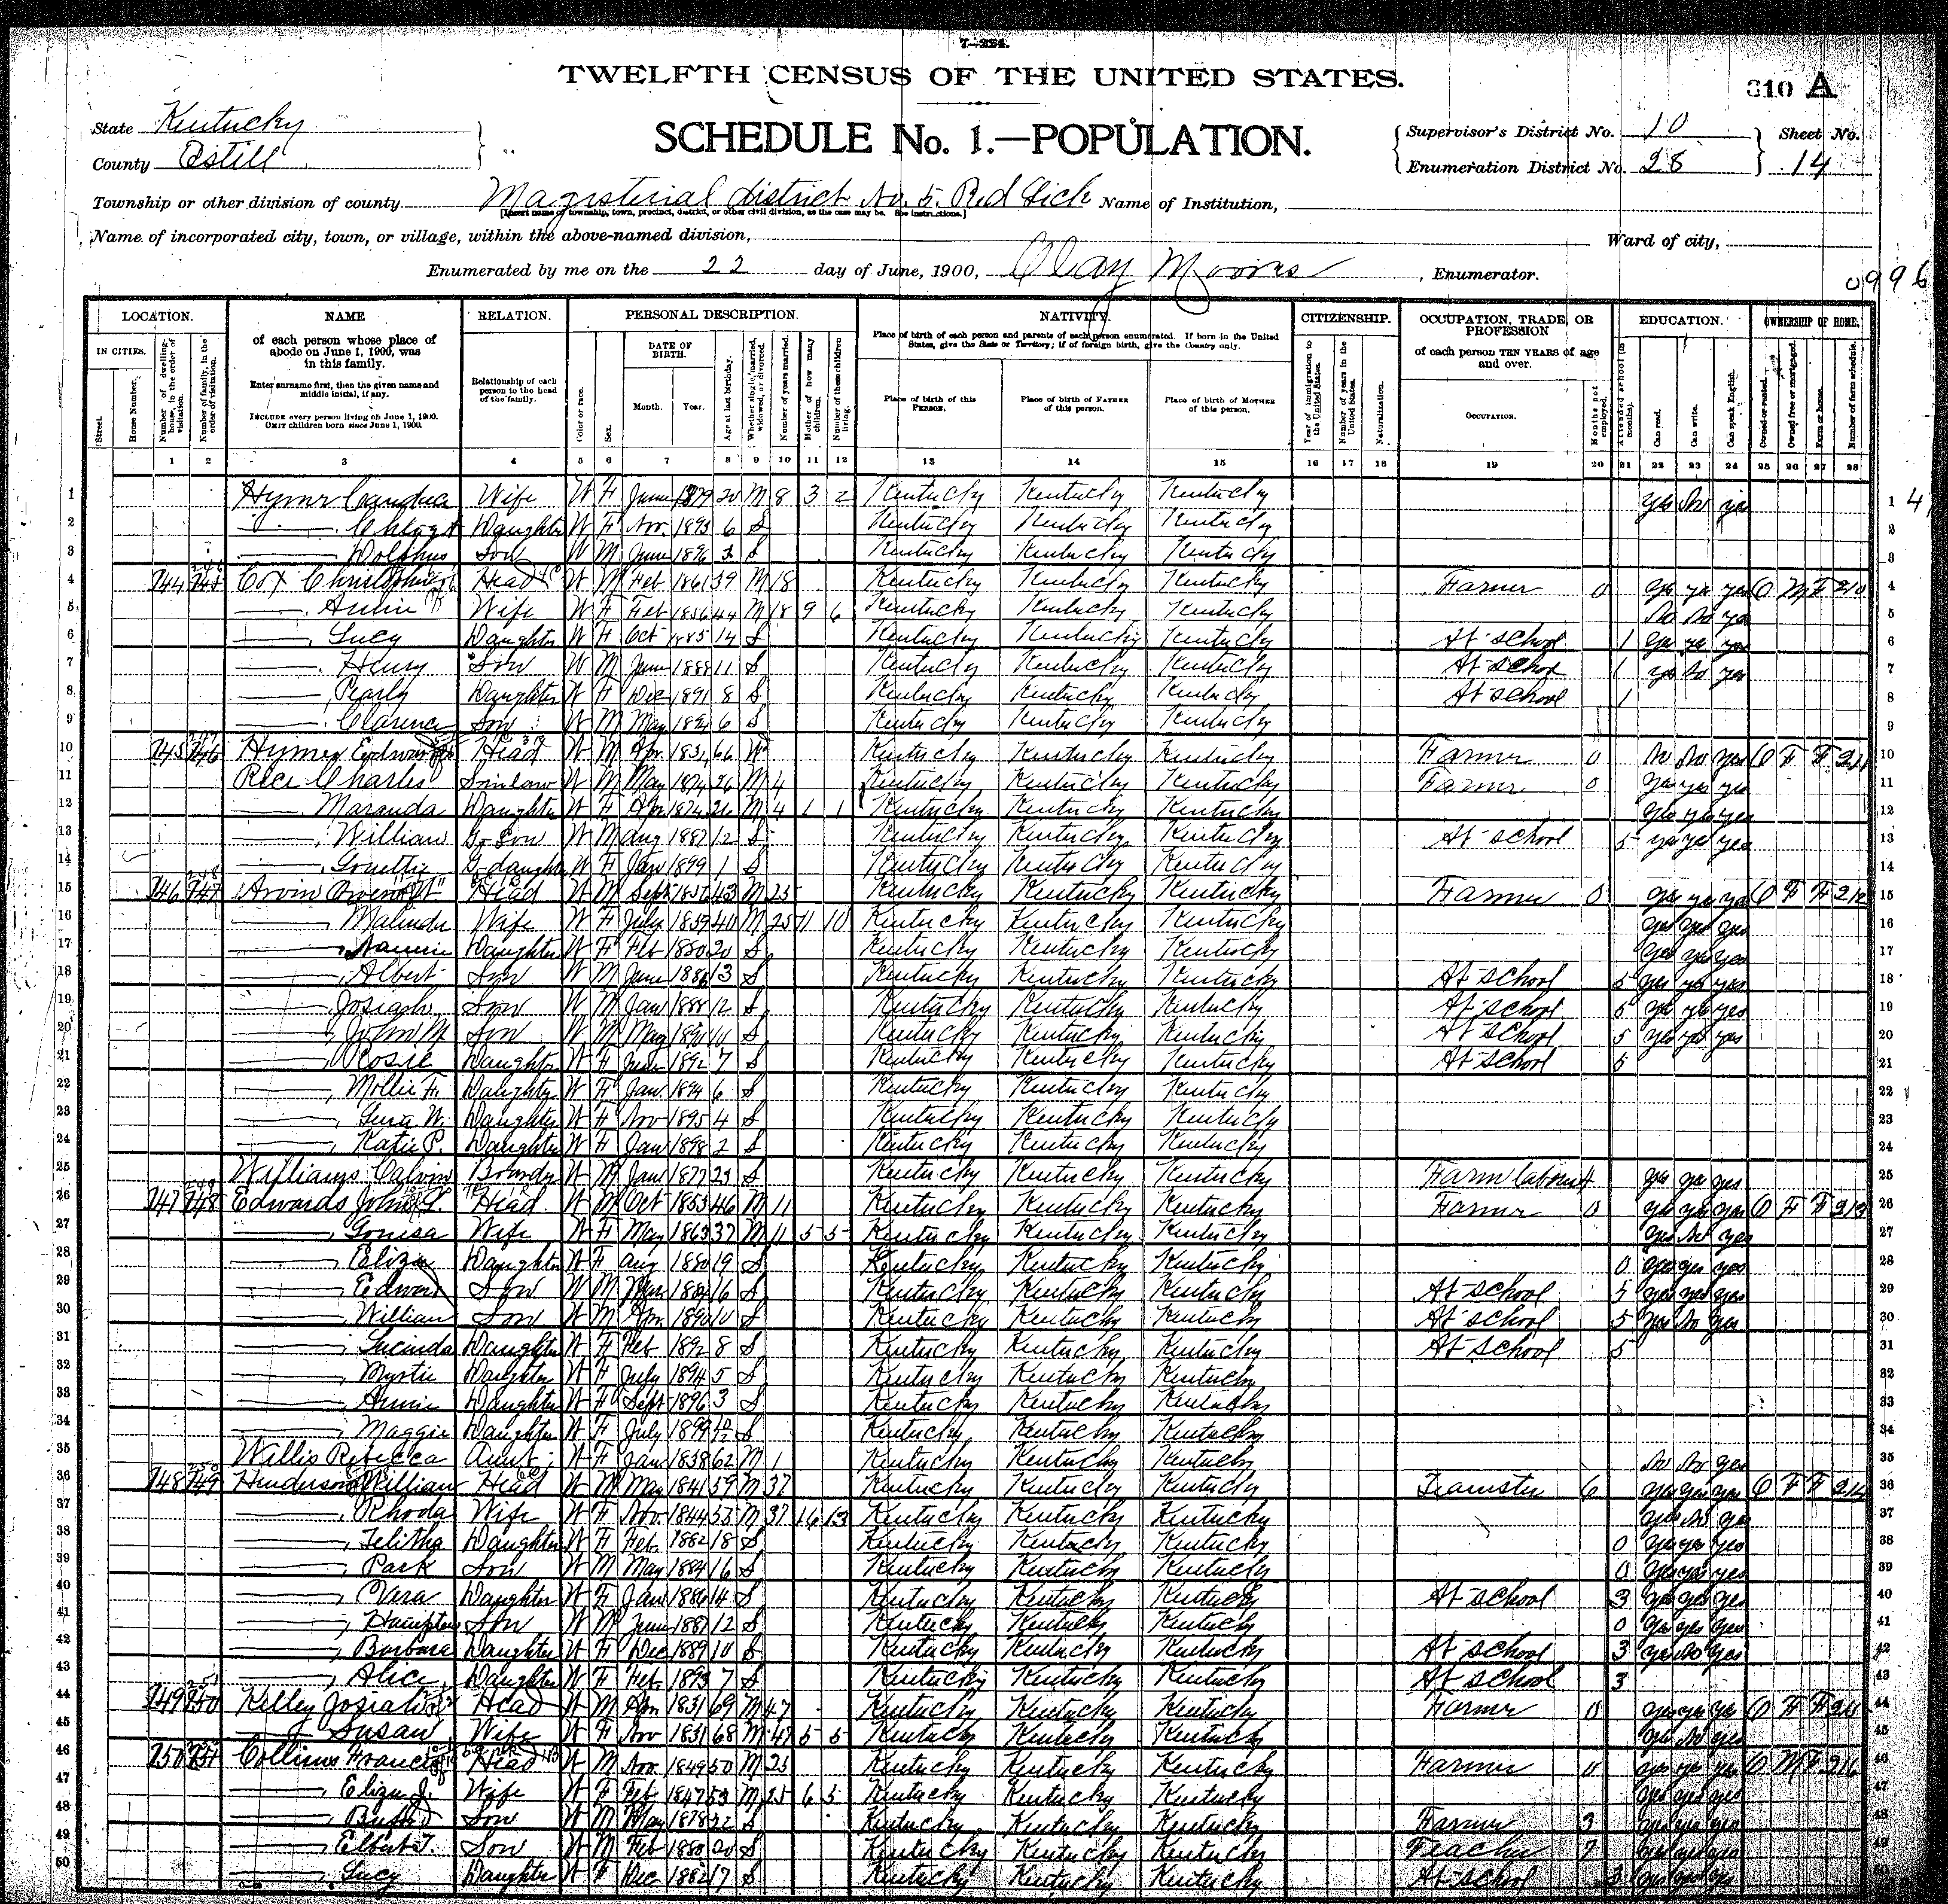 7-224.
TWELFTH CENSUS OF THE UNITED STATES.
310 A
State Kentucky
County Estill
SCHEDULE No. 1.—POPULATION.
Supervisor's District No. 10
Enumeration District No. 28
Sheet No. 14
Township or other division of county Magisterial district No. 5. Red Lick Name of Institution,
[Insert name of township, town, precinct, district, or other civil division, as the case may be. See instructions.]
Name of incorporated city, town, or village, within the above-named division, Ward of city,
Enumerated by me on the 22 day of June, 1900, Clay Morris, Enumerator.
0996
LOCATION. NAME RELATION. PERSONAL DESCRIPTION. NATIVITY. CITIZENSHIP. OCCUPATION, TRADE, OR PROFESSION EDUCATION. OWNERSHIP OF HOME.
IN CITIES. Street. House Number. Number of dwelling-house, in the order of visitation. Number of family, in the order of visitation.
of each person whose place of abode on June 1, 1900, was in this family.
Enter surname first, then the given name and middle initial, if any.
INCLUDE every person living on June 1, 1900. OMIT children born since June 1, 1900.
Relationship of each person to the head of the family.
Color or race. Sex. DATE OF BIRTH. Month. Year. Age at last birthday. Whether single, married, widowed, or divorced. Number of years married. Mother of how many children. Number of these children living.
Place of birth of each person and parents of each person enumerated. If born in the United States, give the State or Territory; if of foreign birth, give the Country only.
Place of birth of this PERSON. Place of birth of FATHER of this person. Place of birth of MOTHER of this person.
Year of immigration to the United States. Number of years in the United States. Naturalization.
of each person TEN YEARS of age and over.
OCCUPATION. Months not employed.
Attended school (in months). Can read. Can write. Can speak English.
Owned or rented. Owned free or mortgaged. Farm or home. Number of farm schedule.
1 2 3 4 5 6 7 8 9 10 11 12 13 14 15 16 17 18 19 20 21 22 23 24 25 26 27 28
1 Hymer Wife W F June 1879 20 M 8 3 2 Kentucky Kentucky Kentucky yes No yes 1
2 Daughter W F Nov. 1893 6 S Kentucky Kentucky Kentucky 2
3 Dolphus Son W M June 1896 3 S Kentucky Kentucky Kentucky 3
4 244 Cox Christopher Head W M Feb 1861 39 M 18 Kentucky Kentucky Kentucky Farmer 0 yes yes yes O M F 210 4
5 Wife W F Feb 1856 44 M 18 9 6 Kentucky Kentucky Kentucky No No yes 5
6 Lucy Daughter W F Oct 1885 14 S Kentucky Kentucky Kentucky At school 1 yes yes yes 6
7 Henry Son W M June 1888 11 S Kentucky Kentucky Kentucky At school 1 yes No yes 7
8 Pearly Daughter W F Dec 1891 8 S Kentucky Kentucky Kentucky At school 1 8
9 Clarence Son W M May 1894 6 S Kentucky Kentucky Kentucky 9
10 245 246 Hymer Head W M Apr. 66 Kentucky Kentucky Kentucky Farmer 0 No No yes O F F 211 10
11 Rice Charles Soninlaw W M May 1874 26 M 4 Kentucky Kentucky Kentucky Farmer 0 yes yes yes 11
12 Maranda Daughter W F Apr 1874 26 M 4 1 1 Kentucky Kentucky Kentucky yes yes yes 12
13 William G. Son W M Aug 1887 12 S Kentucky Kentucky Kentucky At school 5 yes yes yes 13
14 G. daughter W F Jan 1899 1 S Kentucky Kentucky Kentucky 14
15 246 247 Arvin Head W M Sept 43 M 25 Kentucky Kentucky Kentucky Farmer 0 yes yes yes O F F 212 15
16 Malinda Wife W F July 1859 40 M 25 11 10 Kentucky Kentucky Kentucky yes yes yes 16
17 Nannie Daughter W F Feb 1880 20 S Kentucky Kentucky Kentucky yes yes yes 17
18 Albert Son W M June 1886 13 S Kentucky Kentucky Kentucky At school 5 yes yes yes 18
19 Josiah Son W M Jan 1888 12 S Kentucky Kentucky Kentucky At school 5 yes yes yes 19
20 John M. Son W M May 1890 10 S Kentucky Kentucky Kentucky At school 5 yes yes yes 20
21 Rosie Daughter W F June 1892 7 S Kentucky Kentucky Kentucky At school 5 21
22 Mollie F. Daughter W F Jan. 1894 6 S Kentucky Kentucky Kentucky 22
23 Daughter W F Nov 1895 4 S Kentucky Kentucky Kentucky 23
24 Katie P. Daughter W F Jan 1898 2 S Kentucky Kentucky Kentucky 24
25 Williams Calvin W M Jan 1877 23 S Kentucky Kentucky Kentucky Farm laborer 4 yes yes yes 25
26 247 248 Edwards John Head W M Oct 1853 46 M 11 Kentucky Kentucky Kentucky Farmer 0 yes yes yes O F F 213 26
27 Louisa Wife W F May 1863 37 M 11 5 5 Kentucky Kentucky Kentucky yes No yes 27
28 Eliza Daughter W F Aug 1880 19 S Kentucky Kentucky Kentucky 0 yes yes yes 28
29 Edward Son W M Mar 1884 16 S Kentucky Kentucky Kentucky At school 5 yes yes yes 29
30 William Son W M Apr. 1890 10 S Kentucky Kentucky Kentucky At school 5 yes No yes 30
31 Lucinda Daughter W F Feb 1892 8 S Kentucky Kentucky Kentucky At school 5 31
32 Myrtie Daughter W F July 1894 5 S Kentucky Kentucky Kentucky 32
33 Annie Daughter W F Sept 1896 3 S Kentucky Kentucky Kentucky 33
34 Maggie Daughter W F July 1899 S Kentucky Kentucky Kentucky 34
35 Willis Rebecca Aunt W F Jan 1838 62 M 1 Kentucky Kentucky Kentucky No No yes 35
36 248 249 Henderson William Head W M May 1841 59 M 37 Kentucky Kentucky Kentucky Teamster 6 yes yes yes O F F 214 36
37 Rhoda Wife W F Nov. 1844 55 M 37 16 13 Kentucky Kentucky Kentucky yes No yes 37
38 Telitha Daughter W F Feb 1882 18 S Kentucky Kentucky Kentucky 0 yes yes yes 38
39 Park Son W M May 1884 16 S Kentucky Kentucky Kentucky 0 yes yes yes 39
40 Daughter W F Jan 1886 14 S Kentucky Kentucky Kentucky At school 3 yes yes yes 40
41 Hampton Son W M June 1887 12 S Kentucky Kentucky Kentucky 0 yes yes yes 41
42 Barbara Daughter W F Dec 1889 10 S Kentucky Kentucky Kentucky At school 3 yes No yes 42
43 Alice Daughter W F Feb 1893 7 S Kentucky Kentucky Kentucky At school 3 43
44 249 250 Kelley Josiah Head W M Apr 1831 69 M 47 Kentucky Kentucky Kentucky Farmer 0 yes yes yes O F F 215 44
45 Susan Wife W F Nov 1831 68 M 47 5 5 Kentucky Kentucky Kentucky yes No yes 45
46 250 251 Collins Francis Head W M Nov. 1849 50 M 25 Kentucky Kentucky Kentucky Farmer 0 yes yes yes O M F 216 46
47 Eliza J. Wife W F Feb 1847 53 M 25 6 5 Kentucky Kentucky Kentucky yes yes yes 47
48 Son W M May 1878 22 S Kentucky Kentucky Kentucky Farmer 3 yes yes yes 48
49 Elbert T. Son W M Feb 1880 20 S Kentucky Kentucky Kentucky Teacher 7 yes yes yes 49
50 Lucy Daughter W F Dec 1882 17 S Kentucky Kentucky Kentucky At school 3 yes yes yes 50